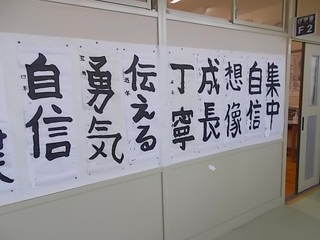 集中
自信
想像
成長
丁寧
伝える
勇気
自信
F2